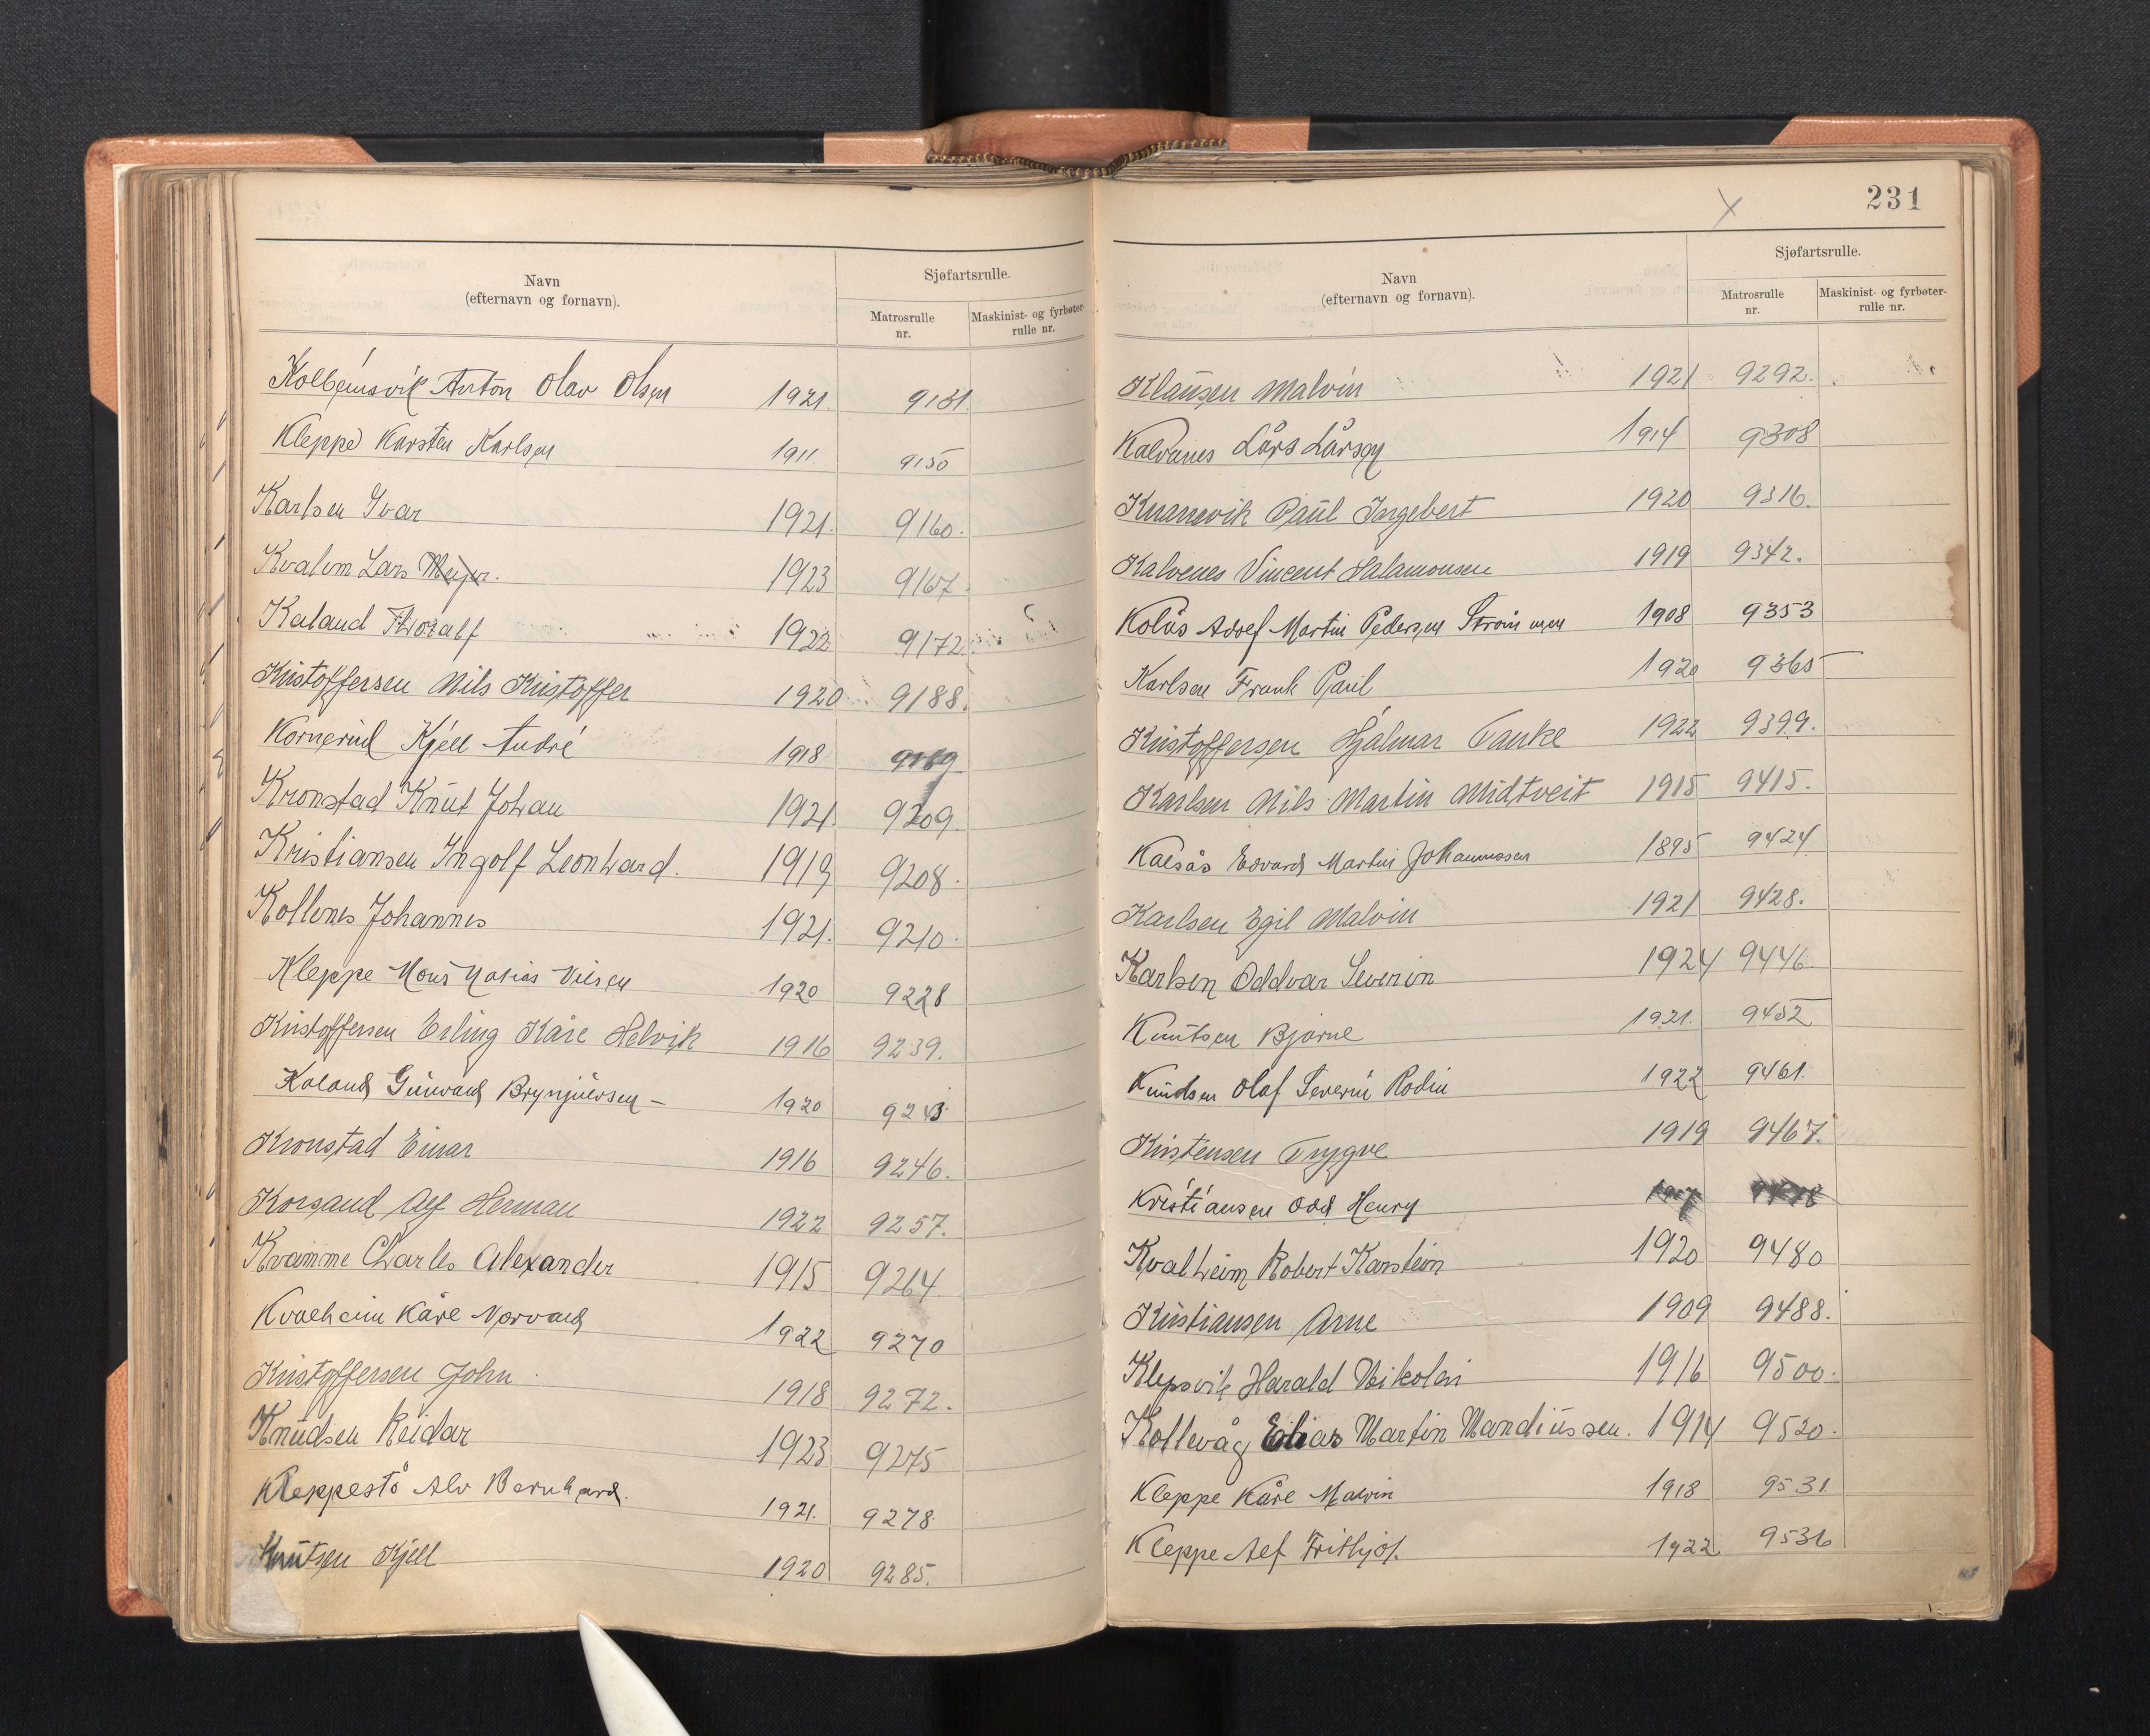 Navn
(efternavn og fornavn).
Sjøfartsrulle.
Matrosrulle
nr.
Maskinist- og fyrbøter-
rulle nr.
Anton Olav Olsen 1921.
Kleppe Karsten Karlsen 1911. 9150
Karlsen Ivar 1921. 9160.
Kvalem Lars Meyer. 1923 9167.
Kaland Thoralf 1922 9172
Kristoffersen Nils Kristoffer 1920 9188.
Kjell André 1918 9189
Kronstad Knut Johan 1921. 9209.
Kristiansen Ingolf Leonhard. 1919 9208.
Kollenes Johannes 1921. 9210.
Kleppe Mons Nilsen 1920 9228
Kristoffersen Erling Kåre Helvik 1916 9239.
Kaland Brynjulvsen 1920 9243
Kronstad Einar 1916 9246.
Korsand Alf Herman 1922 9257.
Kvamme Charles Alexander 1915 9264
Kvalheim Kåre Norvald 1922 9270
Kristoffersen John 1918 9272.
Knudsen Reidar 1923 9275
Kleppestø Alv Bernhard. 1921. 9278
Knutsen Kjell 1920 9285.
231
Navn
(efternavn og fornavn).
Sjøfartsrulle.
Matrosrulle
nr.
Maskinist- og fyrbøter-
rulle nr.
Klausen Malvin 1921 9292.
Kalvanes Lårs Lårsen 1914 9308
Knarrevik Paul Ingebert 1920 9316.
Kalvenes Vincent Salamonsen 1919 9342.
Kolås Adolf Martin Pedersen Strømmen 1908 9353
Karlsen Frank Paul 1920 9365
Kristoffersen Hjalmar Tanke 1922 9399.
Karlsen Nils Martin Midtveit 1915 9415.
Kalsås Edvard Martin Johannessen 1895 9424
Karlsen Egil Malvin 1921 9428.
Karlsen Oddvar Severin 1924 9446.
Knutsen Bjarne 1921. 9452
Knudsen Olaf Severin Rodin 1922 9461.
Kristensen Trygve 1919 9467.
Kristiansen Odd Henry 9478
Kvalheim Robert Karstein 1920 9480
Kristiansen Arne 1909 9488.
Klepsvik Harald Nikolai 1916 9500.
Kollevåg Elias Martin Mandiussen. 1914 9520.
Kleppe Kåre Malvin 1918 9531.
Kleppe Alf Frithjof. 1922 9536